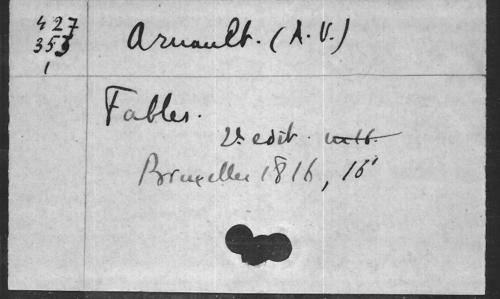 427
353
1
Arnault. (A. V.)
Fables.
2e edit.
Bruxelles 1816, 16°